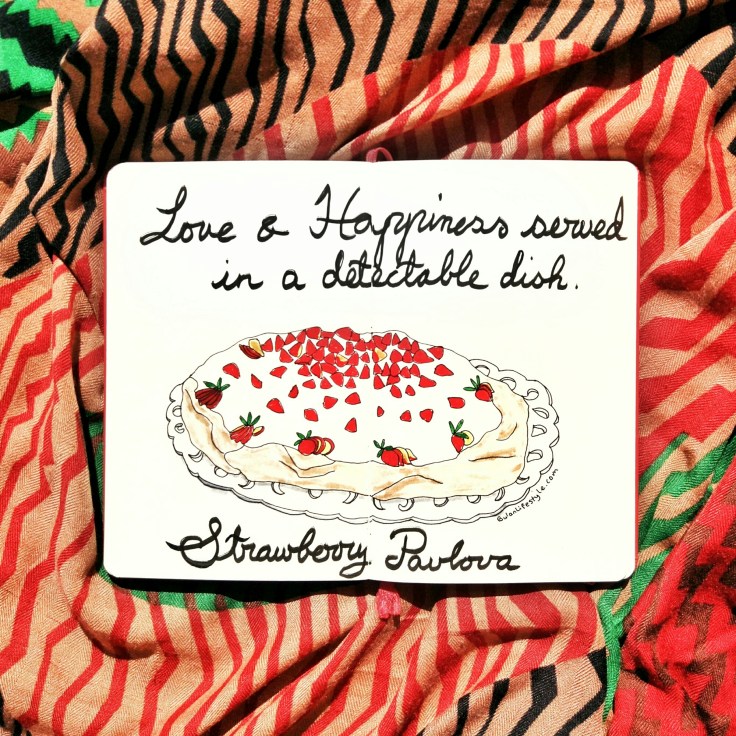 Love & Happiness served
in a detectable dish.
@wanlifestyle.com
Strawberry Pavlova